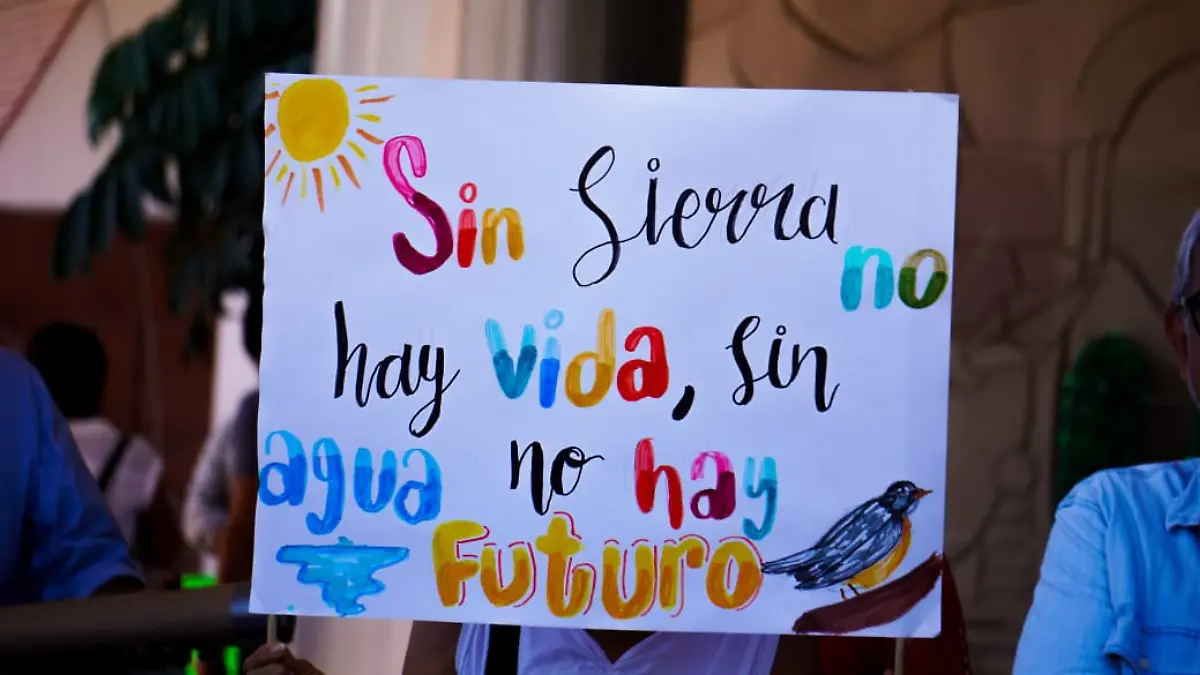 Sin Sierra no
hay vida, sin
agua no hay
Futuro